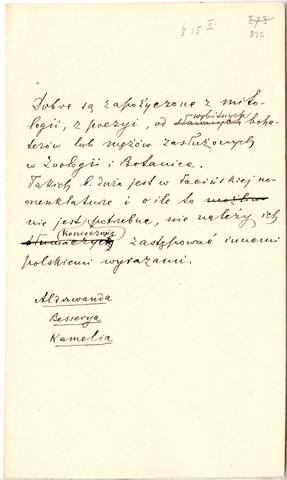 § 15 II
272
237
Dobre są zapożyczone z mito-
logii, z poezyi, od sławnych wybitnych boha-
terów lub mężów zasłużonych
w Zoologii i Botanice.
Takich b. dużo jest w łacińskiej no-
menklaturze i o ile to możliwe
nie jest potrzebne, nie należy ich
tłumaczyć koniecznie zastępować innemi
polskiemi wyrazami.
Aldrowanda
Besserya
Kamelia